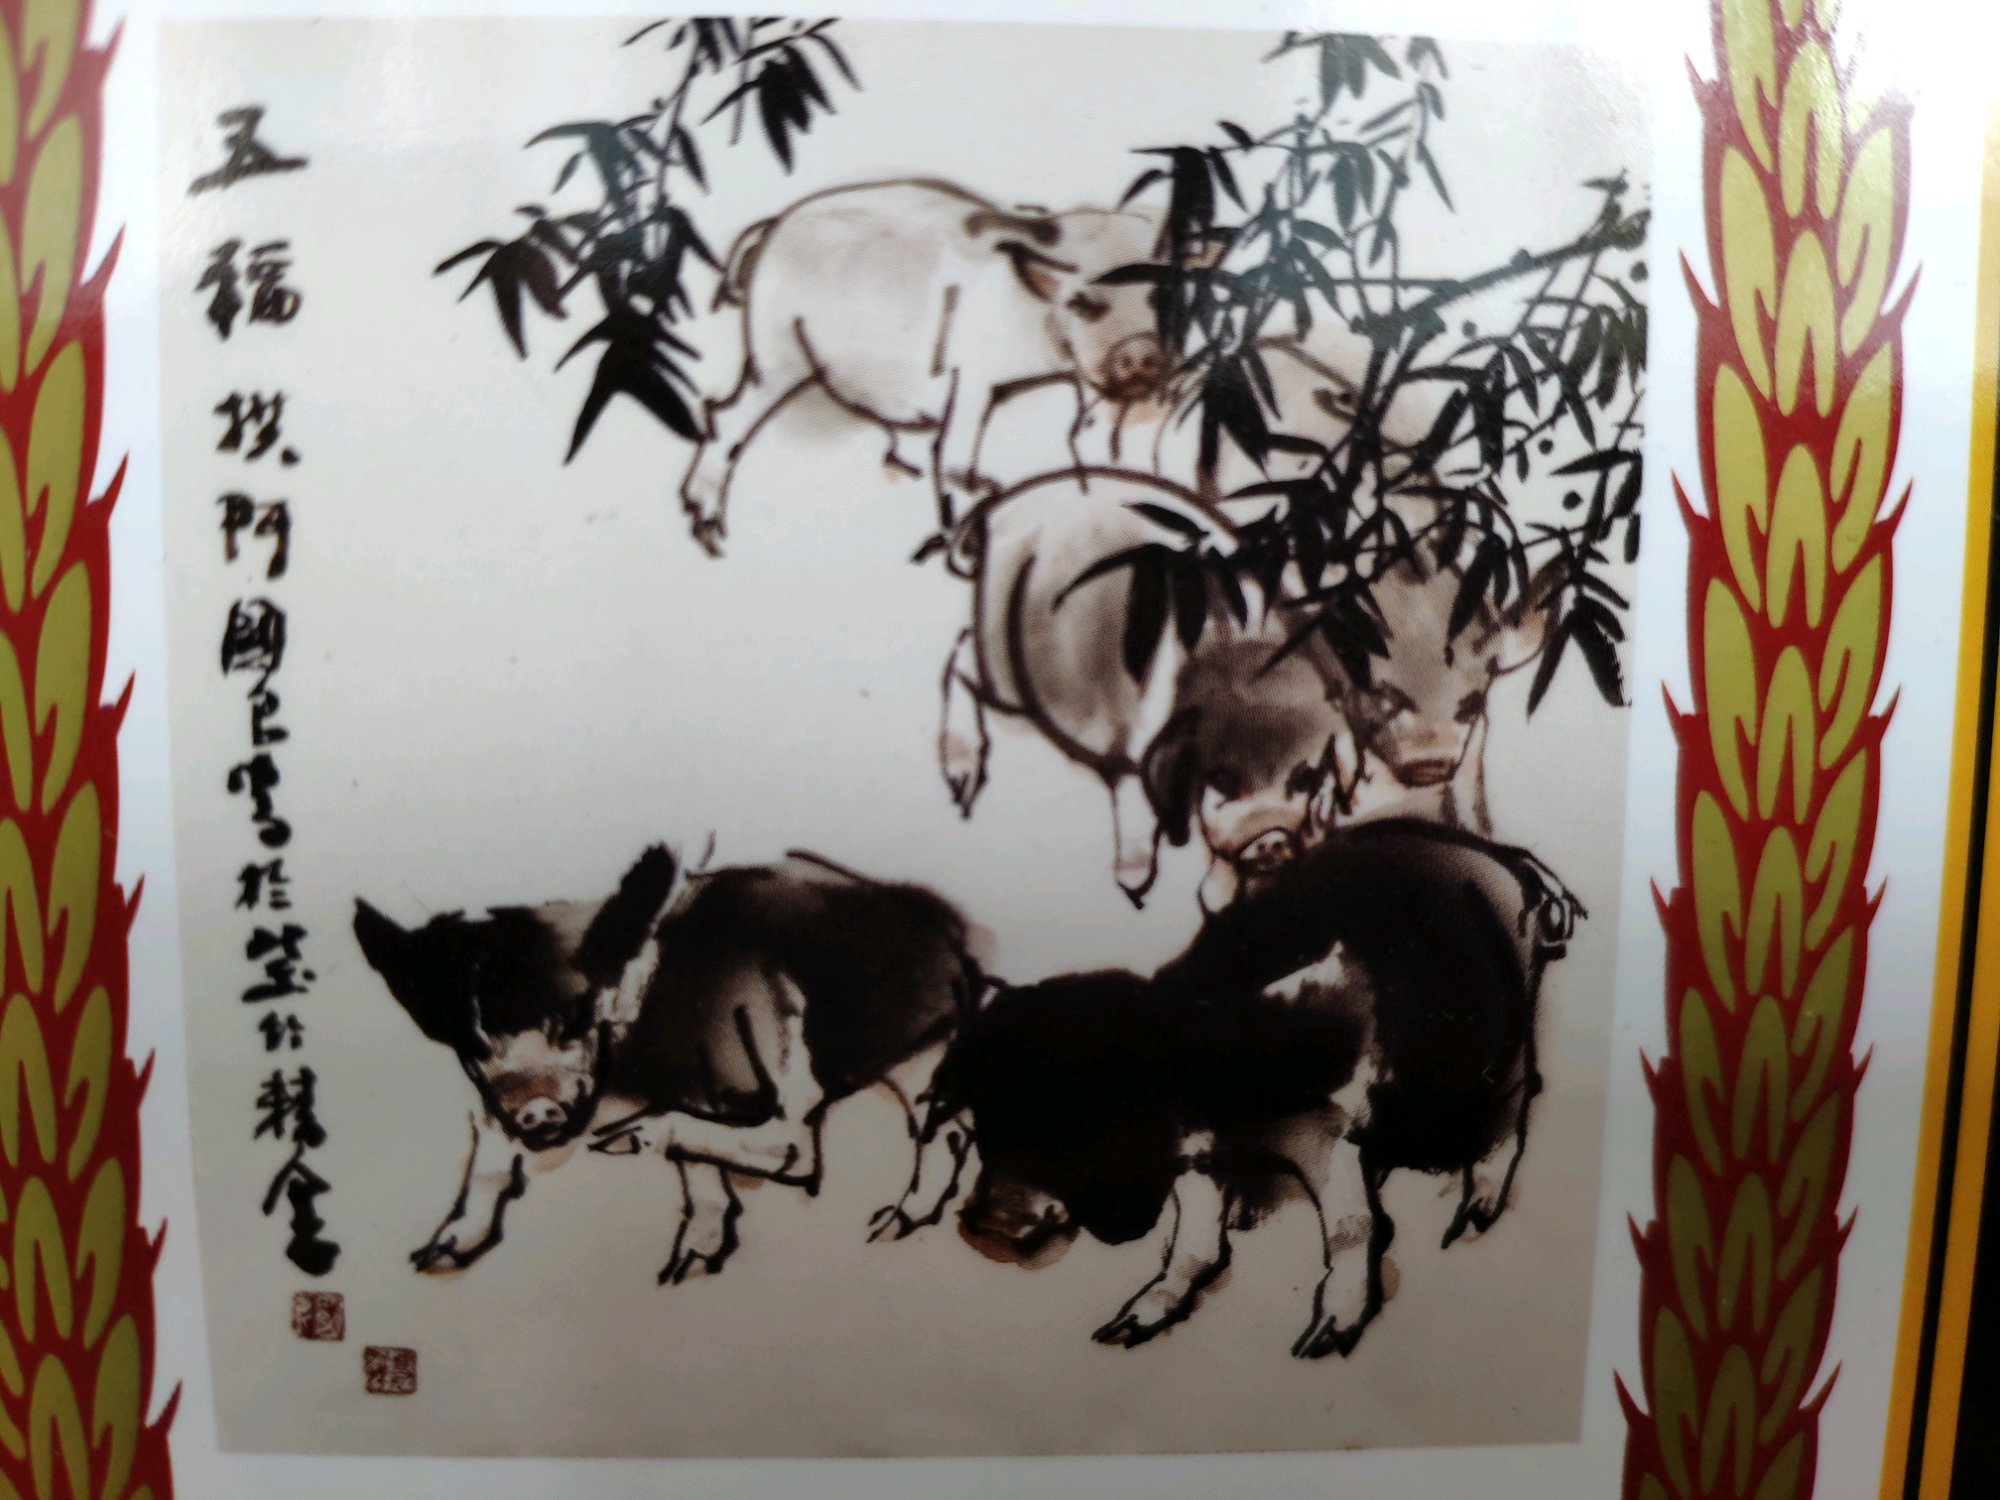 五福拱門國良寫於紫竹精舍